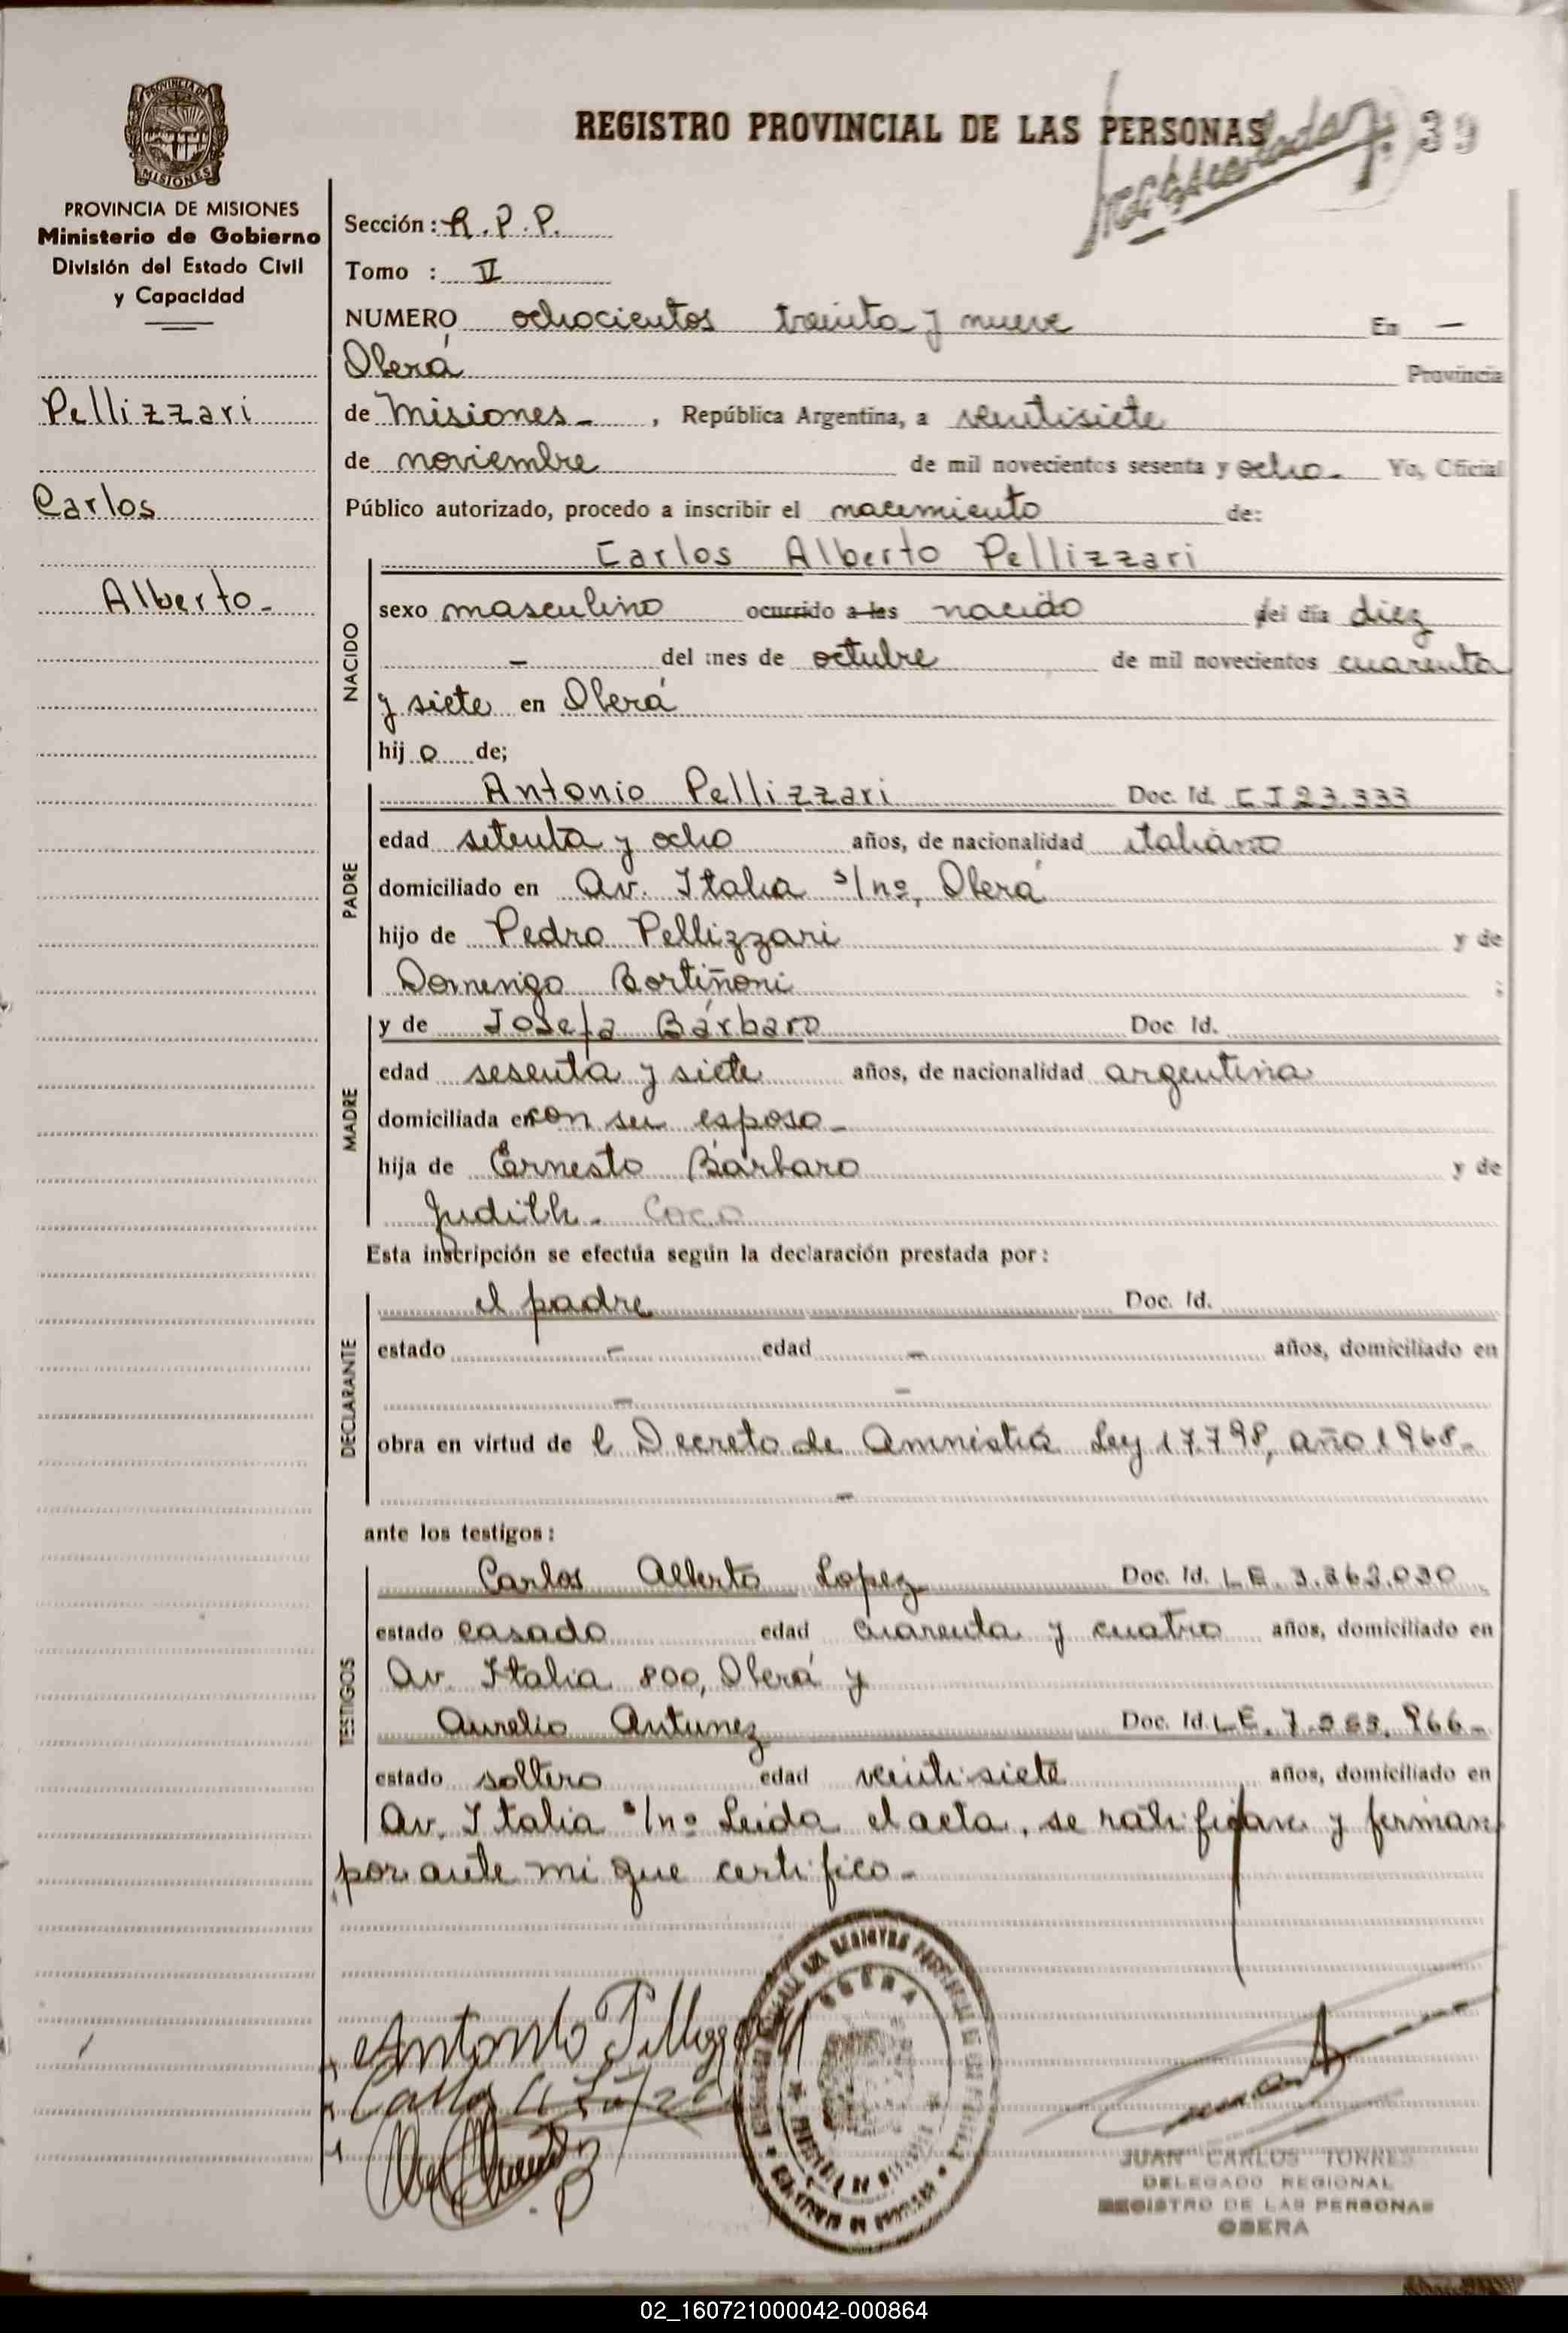 REGISTRO PROVINCIAL DE LAS PERSONAS
39
PROVINCIA DE
MISIONES
PROVINCIA DE MISIONES
Ministerio de Gobierno
División del Estado Civil
y Capacidad
Pellizzari
Carlos
Alberto-
Sección: R.P.P.
Tomo : II
NUMERO ochocientos treinta y nueve En -
Oberá Provincia
de Misiones- , República Argentina, a ventisiete
de noviembre de mil novecientos sesenta y ocho. Yo, Oficial
Público autorizado, procedo a inscribir el nacimiento de:
Carlos Alberto Pellizzari
NACIDO
sexo masculino ocurrido a las nacido del día diez
- del mes de octubre de mil novecientos cuarenta
y siete en Oberá
hijo de;
PADRE
Antonio Pellizzari Doc. Id. CI 23.333
edad setenta y ocho años, de nacionalidad italiano
domiciliado en Av. Italia s/nº, Oberá
hijo de Pedro Pellizzari y de
Domenigo Bortiñoni ;
MADRE
y de Josefa Bárbaro Doc. Id.
edad sesenta y siete años, de nacionalidad argentina
domiciliada en con su esposo-
hija de Ernesto Bárbaro y de
Judith. Coco
Esta inscripción se efectúa según la declaración prestada por:
DECLARANTE
el padre Doc. Id.
estado - edad - años, domiciliado en
- -
obra en virtud de l Decreto de Amnistia Ley 17.798, año 1968-
-
ante los testigos:
TESTIGOS
Carlos Alberto Lopez Doc. Id. LE. 3.363.030
estado casado edad cuarenta y cuatro años, domiciliado en
Av. Italia 800, Oberá y
Aurelio Antunez Doc. Id. LE. 966-
estado soltero edad veinti siete años, domiciliado en
Av. Italia s/nº Leida el acta, se ratifican y firman
por ante mi que certifico-
Antonio
OBERA
JUAN CARLOS TORRES
DELEGADO REGIONAL
REGISTRO DE LAS PERSONAS
OBERA
02_160721000042-000864